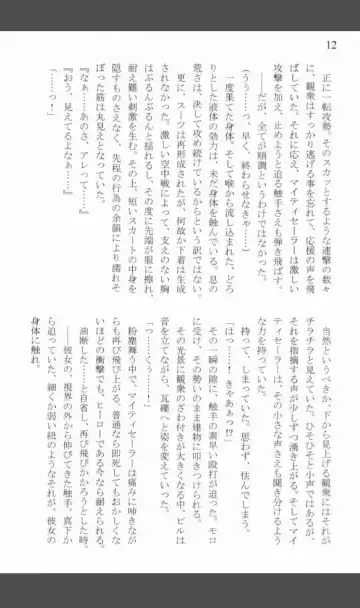 12
　正に一転攻勢。そのスカッとするような連撃の数々
に、観衆はすっかり逃げる事を忘れて、応援の声を飛
ばしていた。それに応え、マイティセーラーは激しい
攻撃を加え、止めようと迫る触手さえも弾き飛ばす。
　――だが、全てが順調というわけではなかった。
（うぅ……っ、早く、終わらせなきゃ……っ）
　一度果てた身体。そして喉から流し込まれた、どろ
りとした液体の効力は、未だ身体を蝕んでいる。息の
荒さは、決して攻め続けているからという訳ではない。
　更に、スーツは再形成されたが、何故か下着は生成
されなかった。激しい空中戦によって、支えのない胸
はぶるんぶるんと揺れるし、その度に先端が服に擦れ、
耐え難い刺激を生む。その上、短いスカートの中身を
隠すものさえなく、先程の行為の余韻により濡れそ
ぼった筋は丸見えとなっていた。
『なぁ……あのさ、アレって……』
『おう、見えてるよなぁ……』
「……っ！」
　当然というべきか、下から見上げる観衆にはそれが
チラチラと見えていた。ひそひそと小声ではあるが、
それを指摘する声が少しずつ湧き上がる。そしてマイ
ティセーラーは、その小さな声さえも聞き分けるよう
な力を持っていた。
　持って、しまっていた。思わず、怯んでしまう。
「はっ……！　きゃあぁっ!?」
　その一瞬の隙に、触手の素早い殴打が迫った。モロ
に受け、その勢いのまま建物に叩きつけられる。
　その光景に観衆のざわ付きが大きくなる中、ビルは
音を立てながら、瓦礫へと姿を変えていった。
「っ……くぅ……！」
　粉塵舞う中で、マイティセーラーは痛みに呻きなが
らも再び飛び上がる。普通なら即死してもおかしくな
いほどの衝撃でも、ヒーローである今なら耐えられる。
　油断した――と自省し、再び飛びかかろうとした時。
　――彼女の、視界の外から伸びてきた触手。真下か
ら迫っていた、細くか弱い紐のようなそれが、彼女の
身体に触れ。